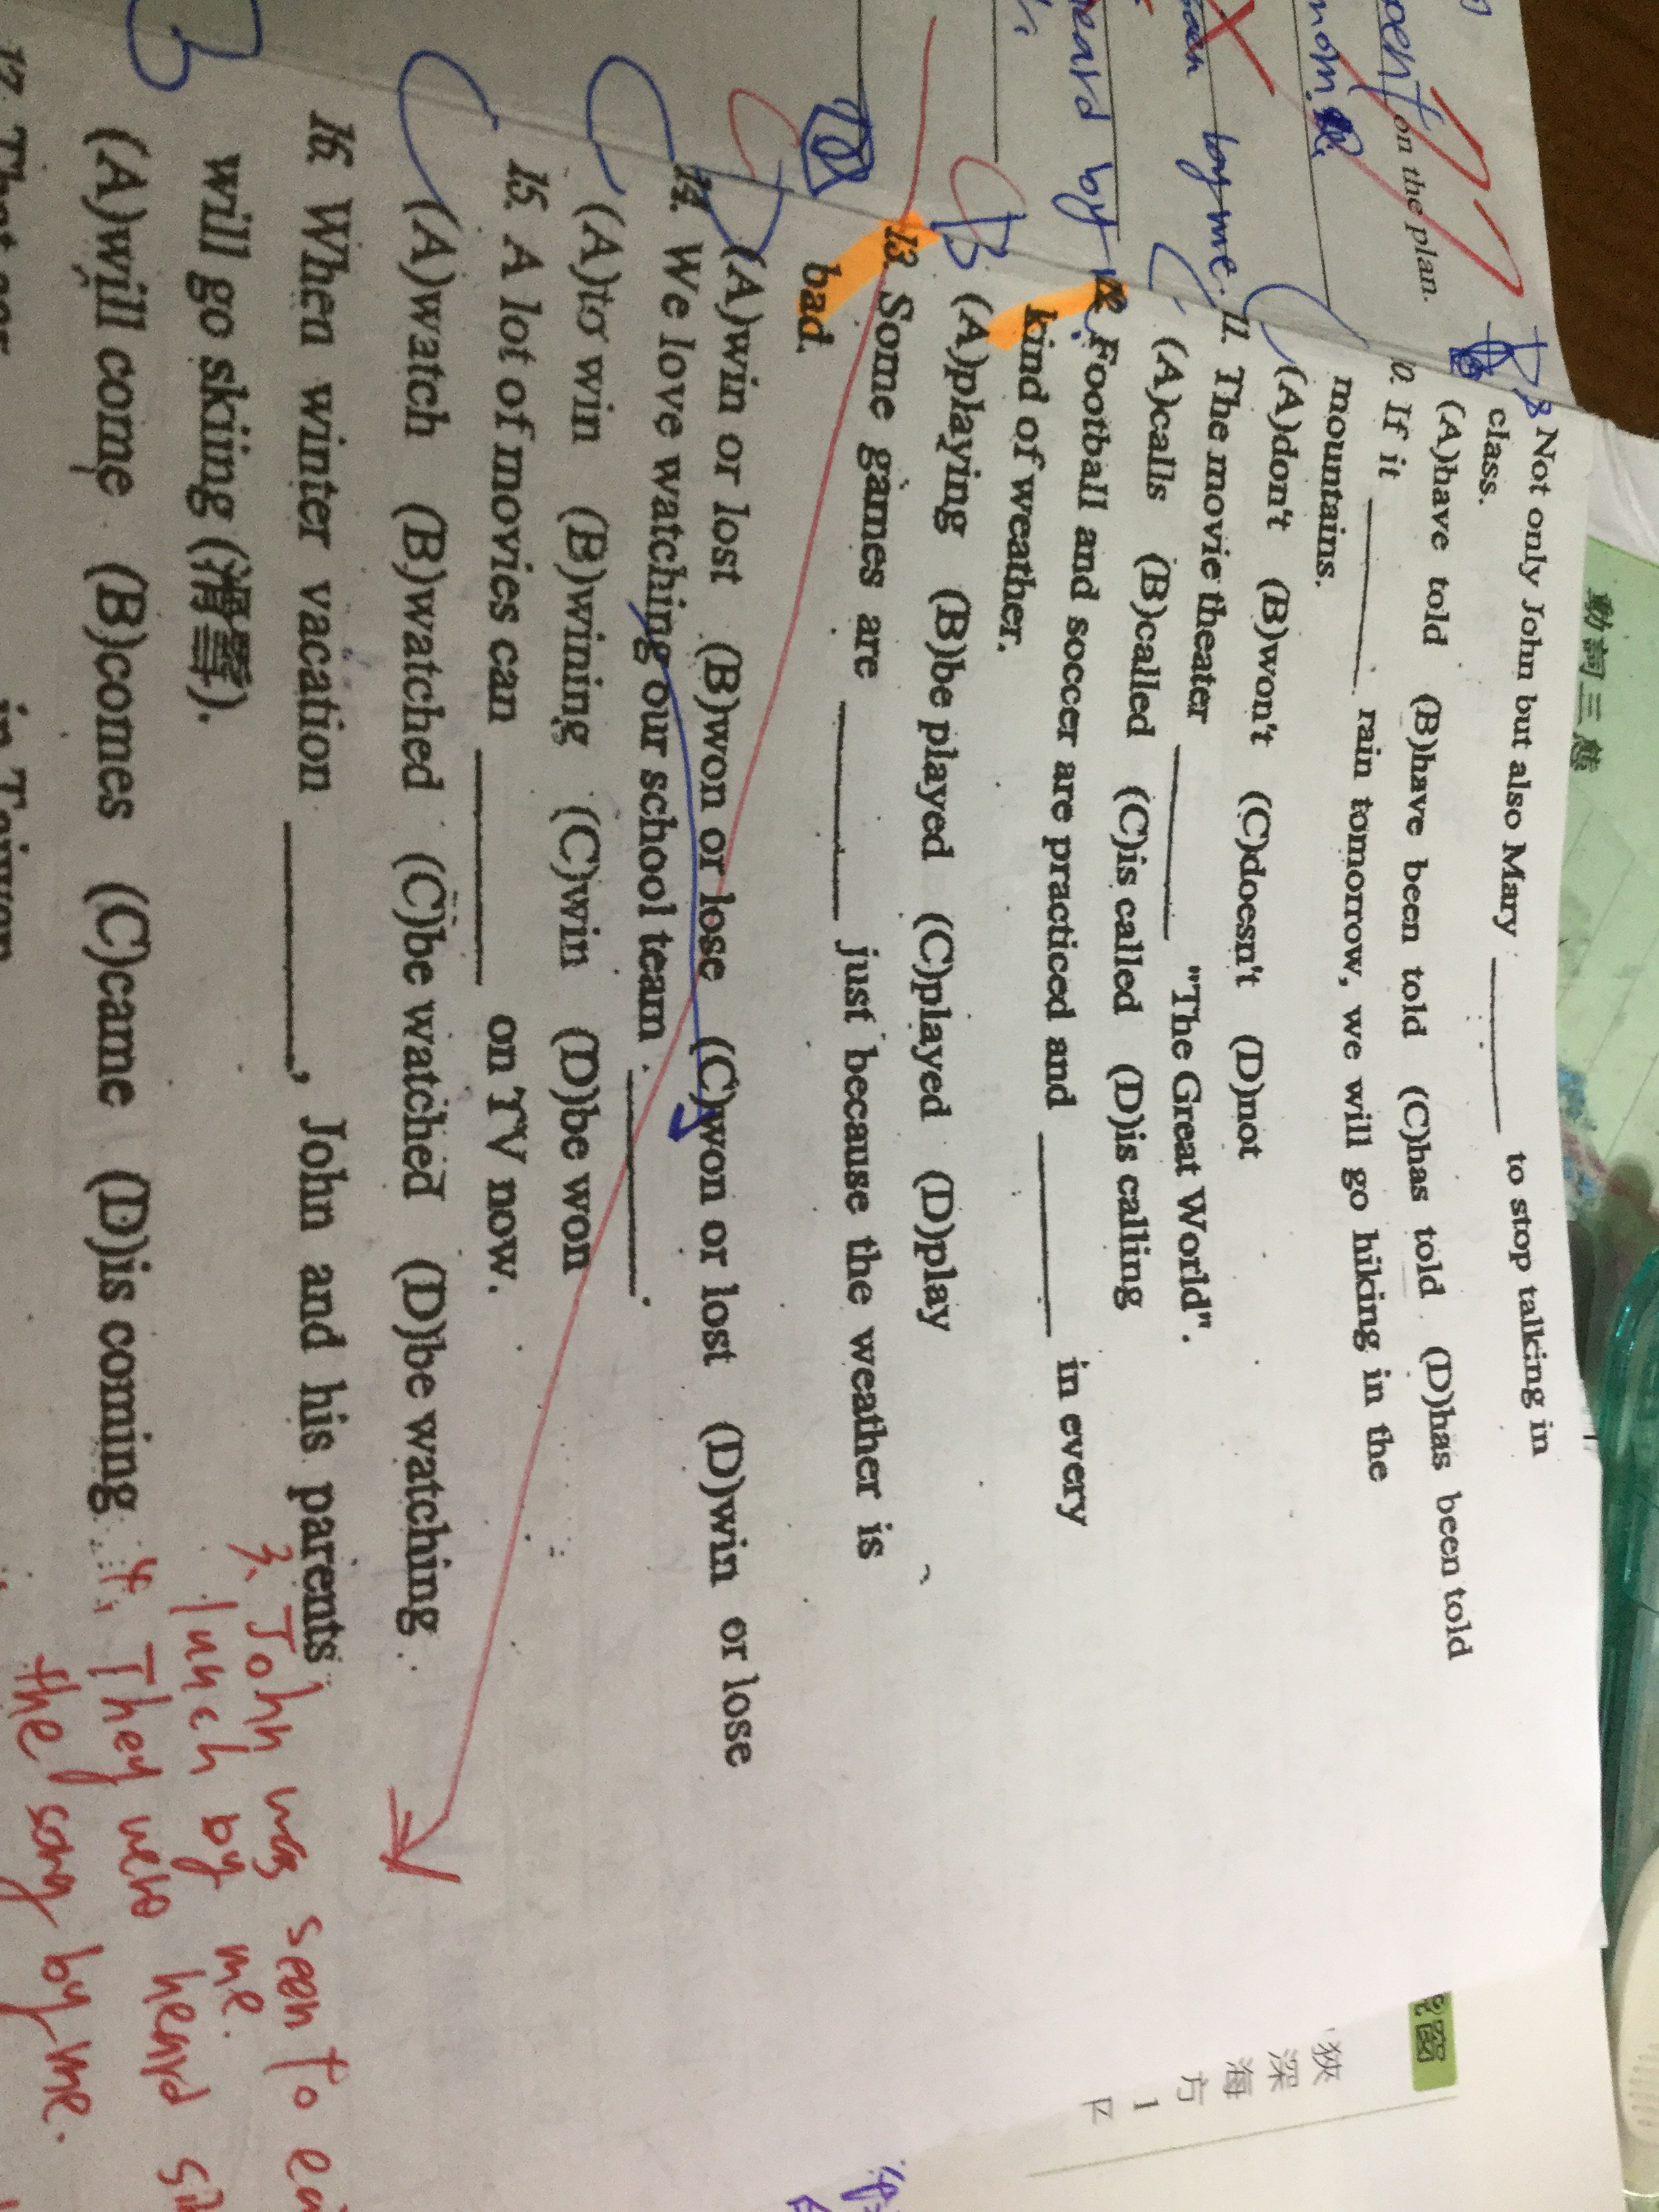 動詞三態
Not only John but also Mary ________ to stop talking in
class.
(A)have told (B)have been told (C)has told (D)has been told
10. If it ________ rain tomorrow, we will go hiking in the
mountains.
(A)don't (B)won't (C)doesn't (D)not
11. The movie theater ________ "The Great World".
(A)calls (B)called (C)is called (D)is calling
12. Football and soccer are practiced and ________ in every
kind of weather.
B
(A)playing (B)be played (C)played (D)play
13. Some games are ________ just because the weather is
bad.
(A)win or lost (B)won or lose (C)won or lost (D)win or lose
14. We love watching our school team ________.
C (A)to win (B)wining (C)win (D)be won
15. A lot of movies can ________ on TV now.
C (A)watch (B)watched (C)be watched (D)be watching
16. When winter vacation ________, John and his parents
will go skiing (滑雪).
B (A)will come (B)comes (C)came (D)is coming
17. That
in Taiwan
on the plan.
by me.
heard by
3. John was seen to
lunch by me.
4. They were heard
the song by me.
窗
狹
深
海
方
1
平